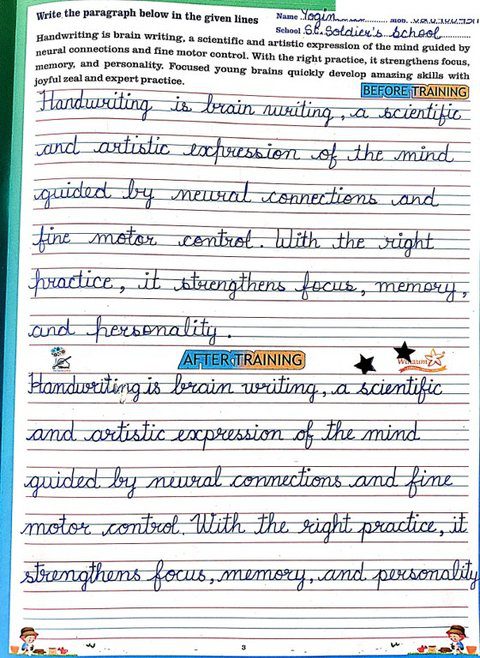 Write the paragraph below in the given lines
Name Yogin
Mob.
School St. Soldier's School
Handwriting is brain writing, a scientific and artistic expression of the mind guided by
neural connections and fine motor control. With the right practice, it strengthens focus,
memory, and personality. Focused young brains quickly develop amazing skills with
joyful zeal and expert practice.
BEFORE TRAINING
Handwriting is brain writing, a scientific
and artistic expression of the mind
guided by neural connections and
fine motor control. With the right
practice, it strengthens focus, memory,
and personality.
AFTER TRAINING
Handwriting is brain writing, a scientific
and artistic expression of the mind
guided by neural connections and fine
motor control. With the right practice, it
strengthens focus, memory, and personality
3